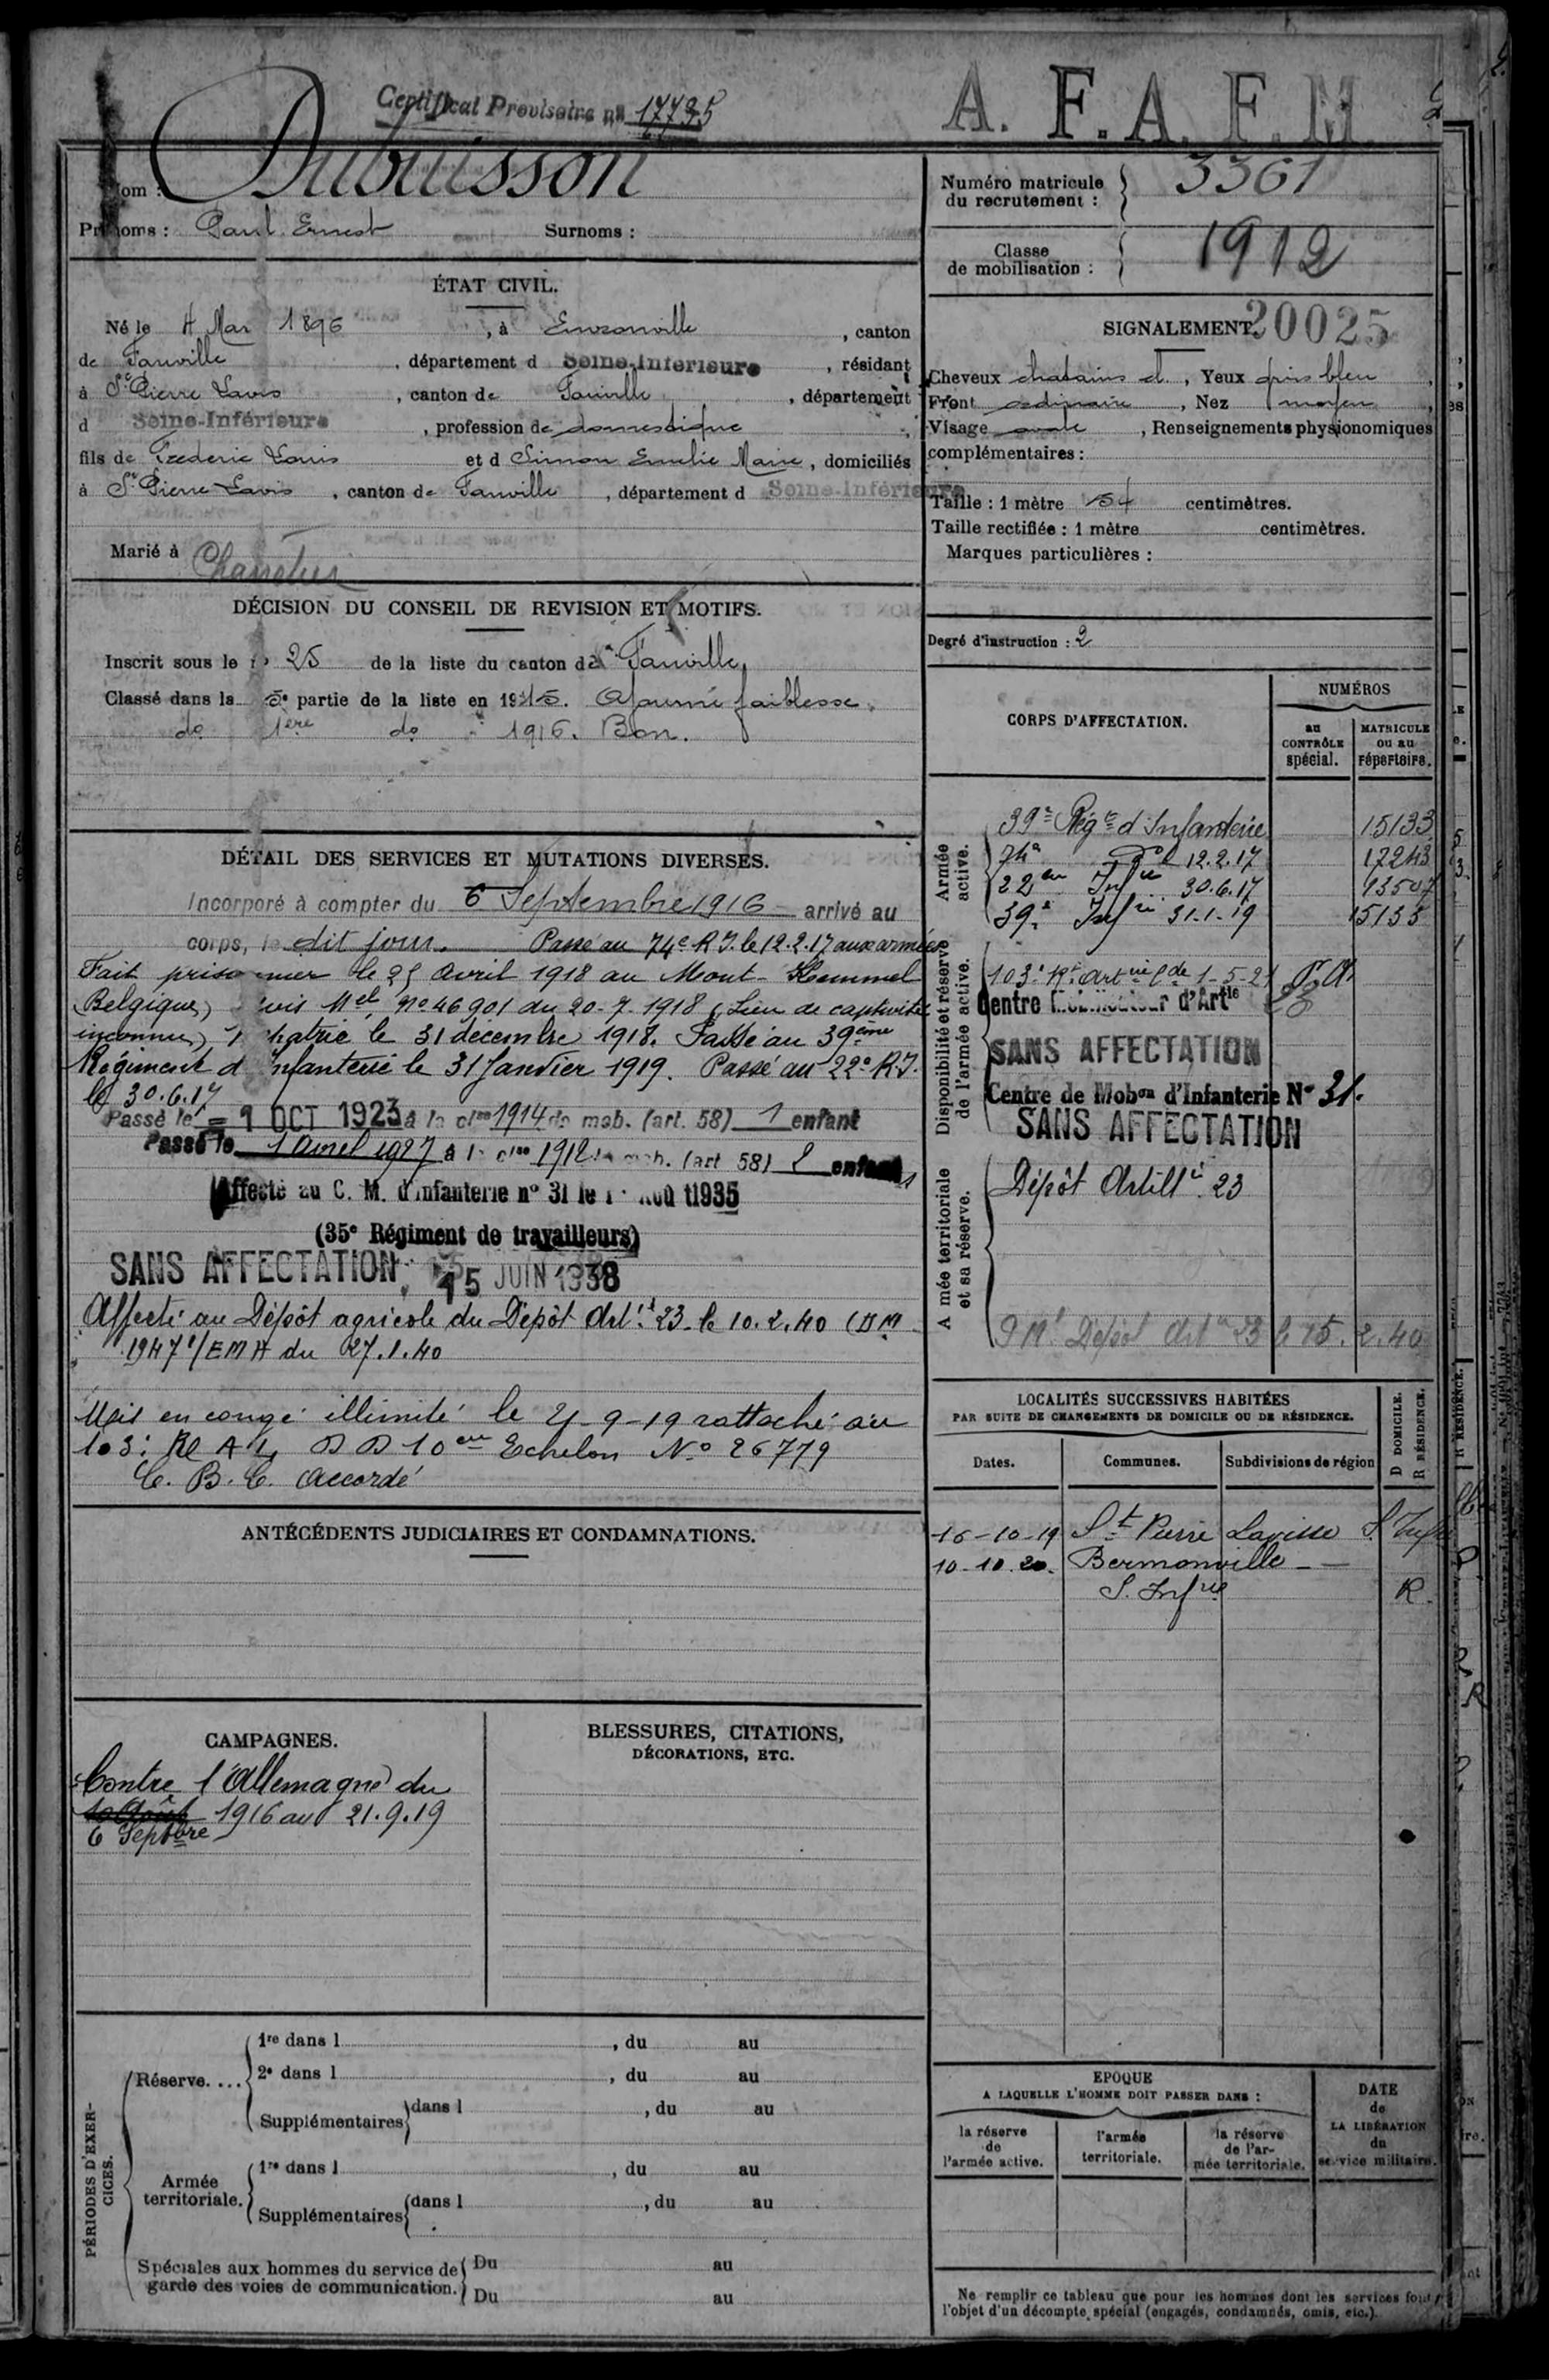 Certificat Provisoire n° 17735
A. F. A. F. M
Nom : Dubuisson
Prénoms : Paul Ernest Surnoms :
ÉTAT CIVIL.
Né le 4 Mar 1896, à Envronville, canton
de Fauville, département d Seine-Inférieure, résidant
à St Pierre Lavis, canton de Fauville, département
d Seine-Inférieure, profession de domestique
fils de Frederic Louis et d Simon Emelie Marie, domiciliés
à St Pierre Lavis, canton de Fauville, département d Seine-Inférieure
Marié à
DÉCISION DU CONSEIL DE REVISION ET MOTIFS.
Inscrit sous le n° 25 de la liste du canton de Fauville
Classé dans la 5e partie de la liste en 1915. Ajourné faiblesse.
do 1ère do 1916. Bon.
DÉTAIL DES SERVICES ET MUTATIONS DIVERSES.
Incorporé à compter du 6 Septembre 1916 arrivé au
corps, le dit jour. Passé au 74e R I. le 12.2.17 aux armées
Fait prisonnier le 25 Avril 1918 au Mont-Kemmel
Belgique) avis Mel No 46901 du 20-7-1918 (Lieu de captivité
inconnu) rapatrié le 31 décembre 1918. Passé au 39ème
Régiment d'Infanterie le 31 Janvier 1919. Passé au 22e R.I.
le 30.6.17
Passé le = 1 OCT 1923 à la clse 1914 de mob. (art. 58) 1 enfant
Passé le 1 Avril 1927 à la clse 1912 de mob. (art 58) 2 enfants
Affecté au C. M. d'infanterie n° 31 le 1 Aoû t1935
(35e Régiment de travailleurs)
SANS AFFECTATION 15 JUIN 1938
Affecté au Dépôt agricole du Dépôt Artie 23 le 10.2.40 (DM
1947 1/EMA du 27.1.40
Mis en congé illimité le 21-9-19 rattaché au
103e R A L D D 10em Echelon No 26779
C. B. C. Accordé
ANTÉCÉDENTS JUDICIAIRES ET CONDAMNATIONS.
CAMPAGNES.
Contre l'Allemagne du
6 Septbre 1916 au 21.9.19
BLESSURES, CITATIONS,
DÉCORATIONS, ETC.
PÉRIODES D'EXERCICES.
Réserve....
1re dans l , du au
2e dans l , du au
Supplémentaires dans l , du au
Armée
territoriale.
1re dans l , du au
Supplémentaires dans l , du au
Spéciales aux hommes du service de
garde des voies de communication.
Du au
Du au
Numéro matricule
du recrutement : 3361
Classe
de mobilisation : 1912
SIGNALEMENT. 20025
Cheveux chatains cl., Yeux gris bleu,
Front ordinaire, Nez moyen,
Visage ovale, Renseignements physionomiques
complémentaires :
Taille : 1 mètre 54 centimètres.
Taille rectifiée : 1 mètre centimètres.
Marques particulières :
Degré d'instruction : 2
CORPS D'AFFECTATION.
NUMÉROS
au
CONTRÔLE
spécial.
MATRICULE
ou au
répertoire.
Armée
active.
39e Régt d'Infanterie 15133
74e do 12.2.17 17243
22em Infie 30.6.17 13507
39e Infie 31-1-19 15133
Disponibilité et réserve
de l'armée active.
103e Rt Artie Lde 1-5-21
Centre Mobilisateur d'Artie 23
SANS AFFECTATION
Centre de Mobon d'Infanterie N° 31.
SANS AFFECTATION
Armée territoriale
et sa réserve.
Dépôt Artillie 23
Dépôt Artie 23 le 15.2.40
LOCALITÉS SUCCESSIVES HABITÉES
PAR SUITE DE CHANGEMENTS DE DOMICILE OU DE RÉSIDENCE.
Dates.
Communes.
Subdivisions de région
D DOMICILE.
R RÉSIDENCE.
16-10-19 St Pierre Lavisse S. Infre
10-10.20. Bermonville
S. Infre R.
EPOQUE
A LAQUELLE L'HOMME DOIT PASSER DANS :
la réserve
de
l'armée active.
l'armée
territoriale.
la réserve
de l'ar-
mée territoriale.
DATE
de
LA LIBÉRATION
du
service militaire.
Ne remplir ce tableau que pour les hommes dont les services font
l'objet d'un décompte spécial (engagés, condamnés, omis, etc.).